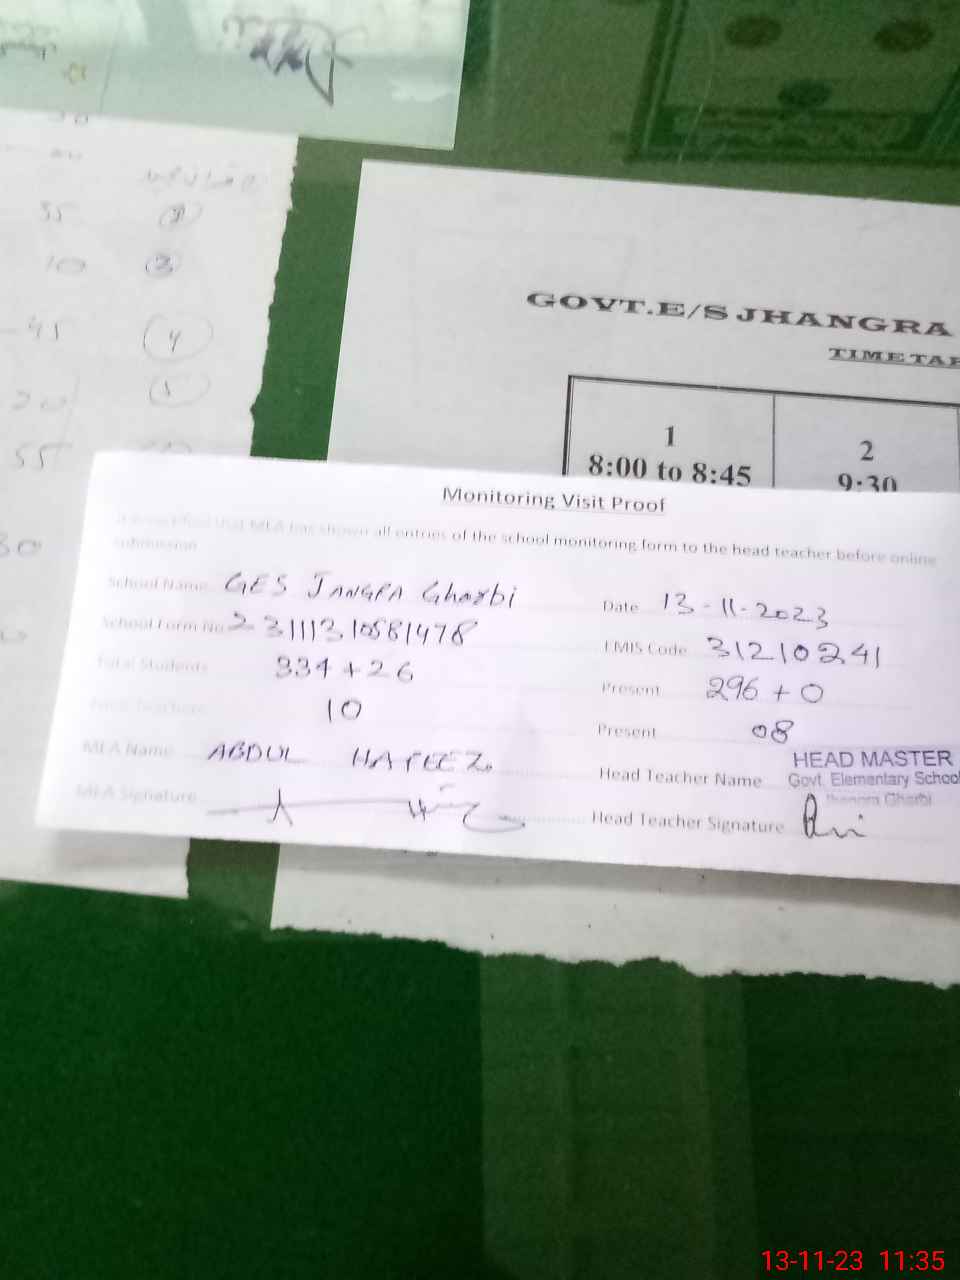 35
10
45
4
20
5
55
30
GOVT.E/S JHANGRA
TIME TAB
1
8:00 to 8:45
2
9:30
Monitoring Visit Proof
that MEA has shown all entries of the school monitoring form to the head teacher before online
submission
School Name GES JANGRA Gharbi
Date 13-11-2023
School Form No 23111310581478
EMIS Code 31210241
Total Students 334+26
Present 296 + 0
Total Teachers 10
Present 08
MEA Name ABDUL HAFEEZ
Head Teacher Name HEAD MASTER
Govt. Elementary School
Jhangra Gharbi
MEA Signature
Head Teacher Signature
13-11-23 11:35